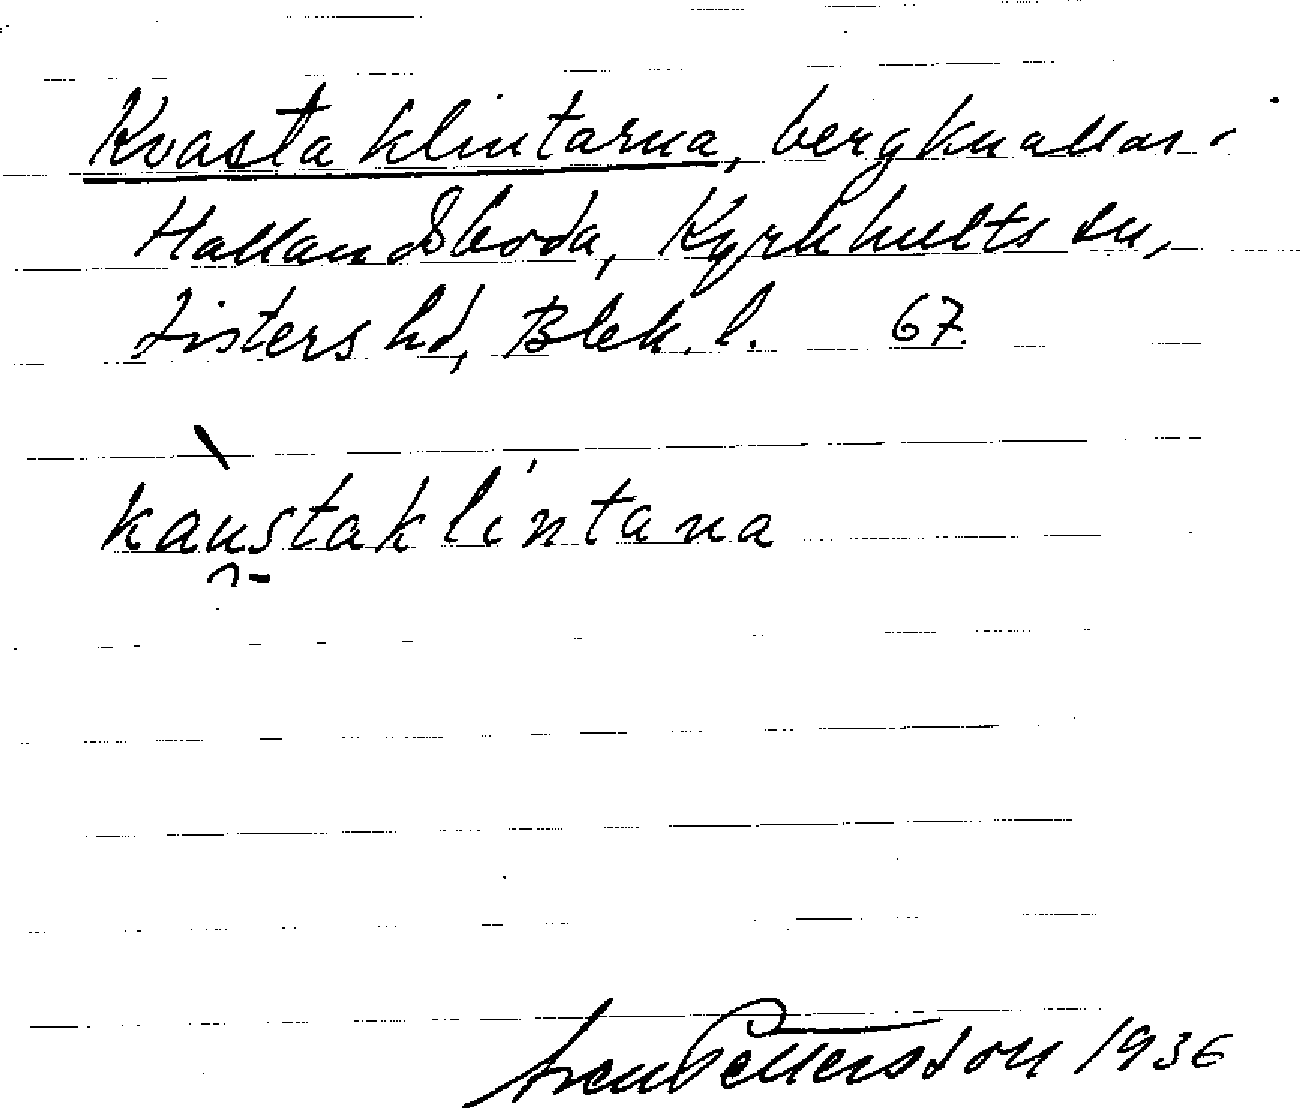 Kvastaklintarna, bergknallar i
Hallandsboda, Kyrkhults sn,
Listers hd, Blek. l. 67.
kàu̯staklíntana
Sven Pettersson 1936